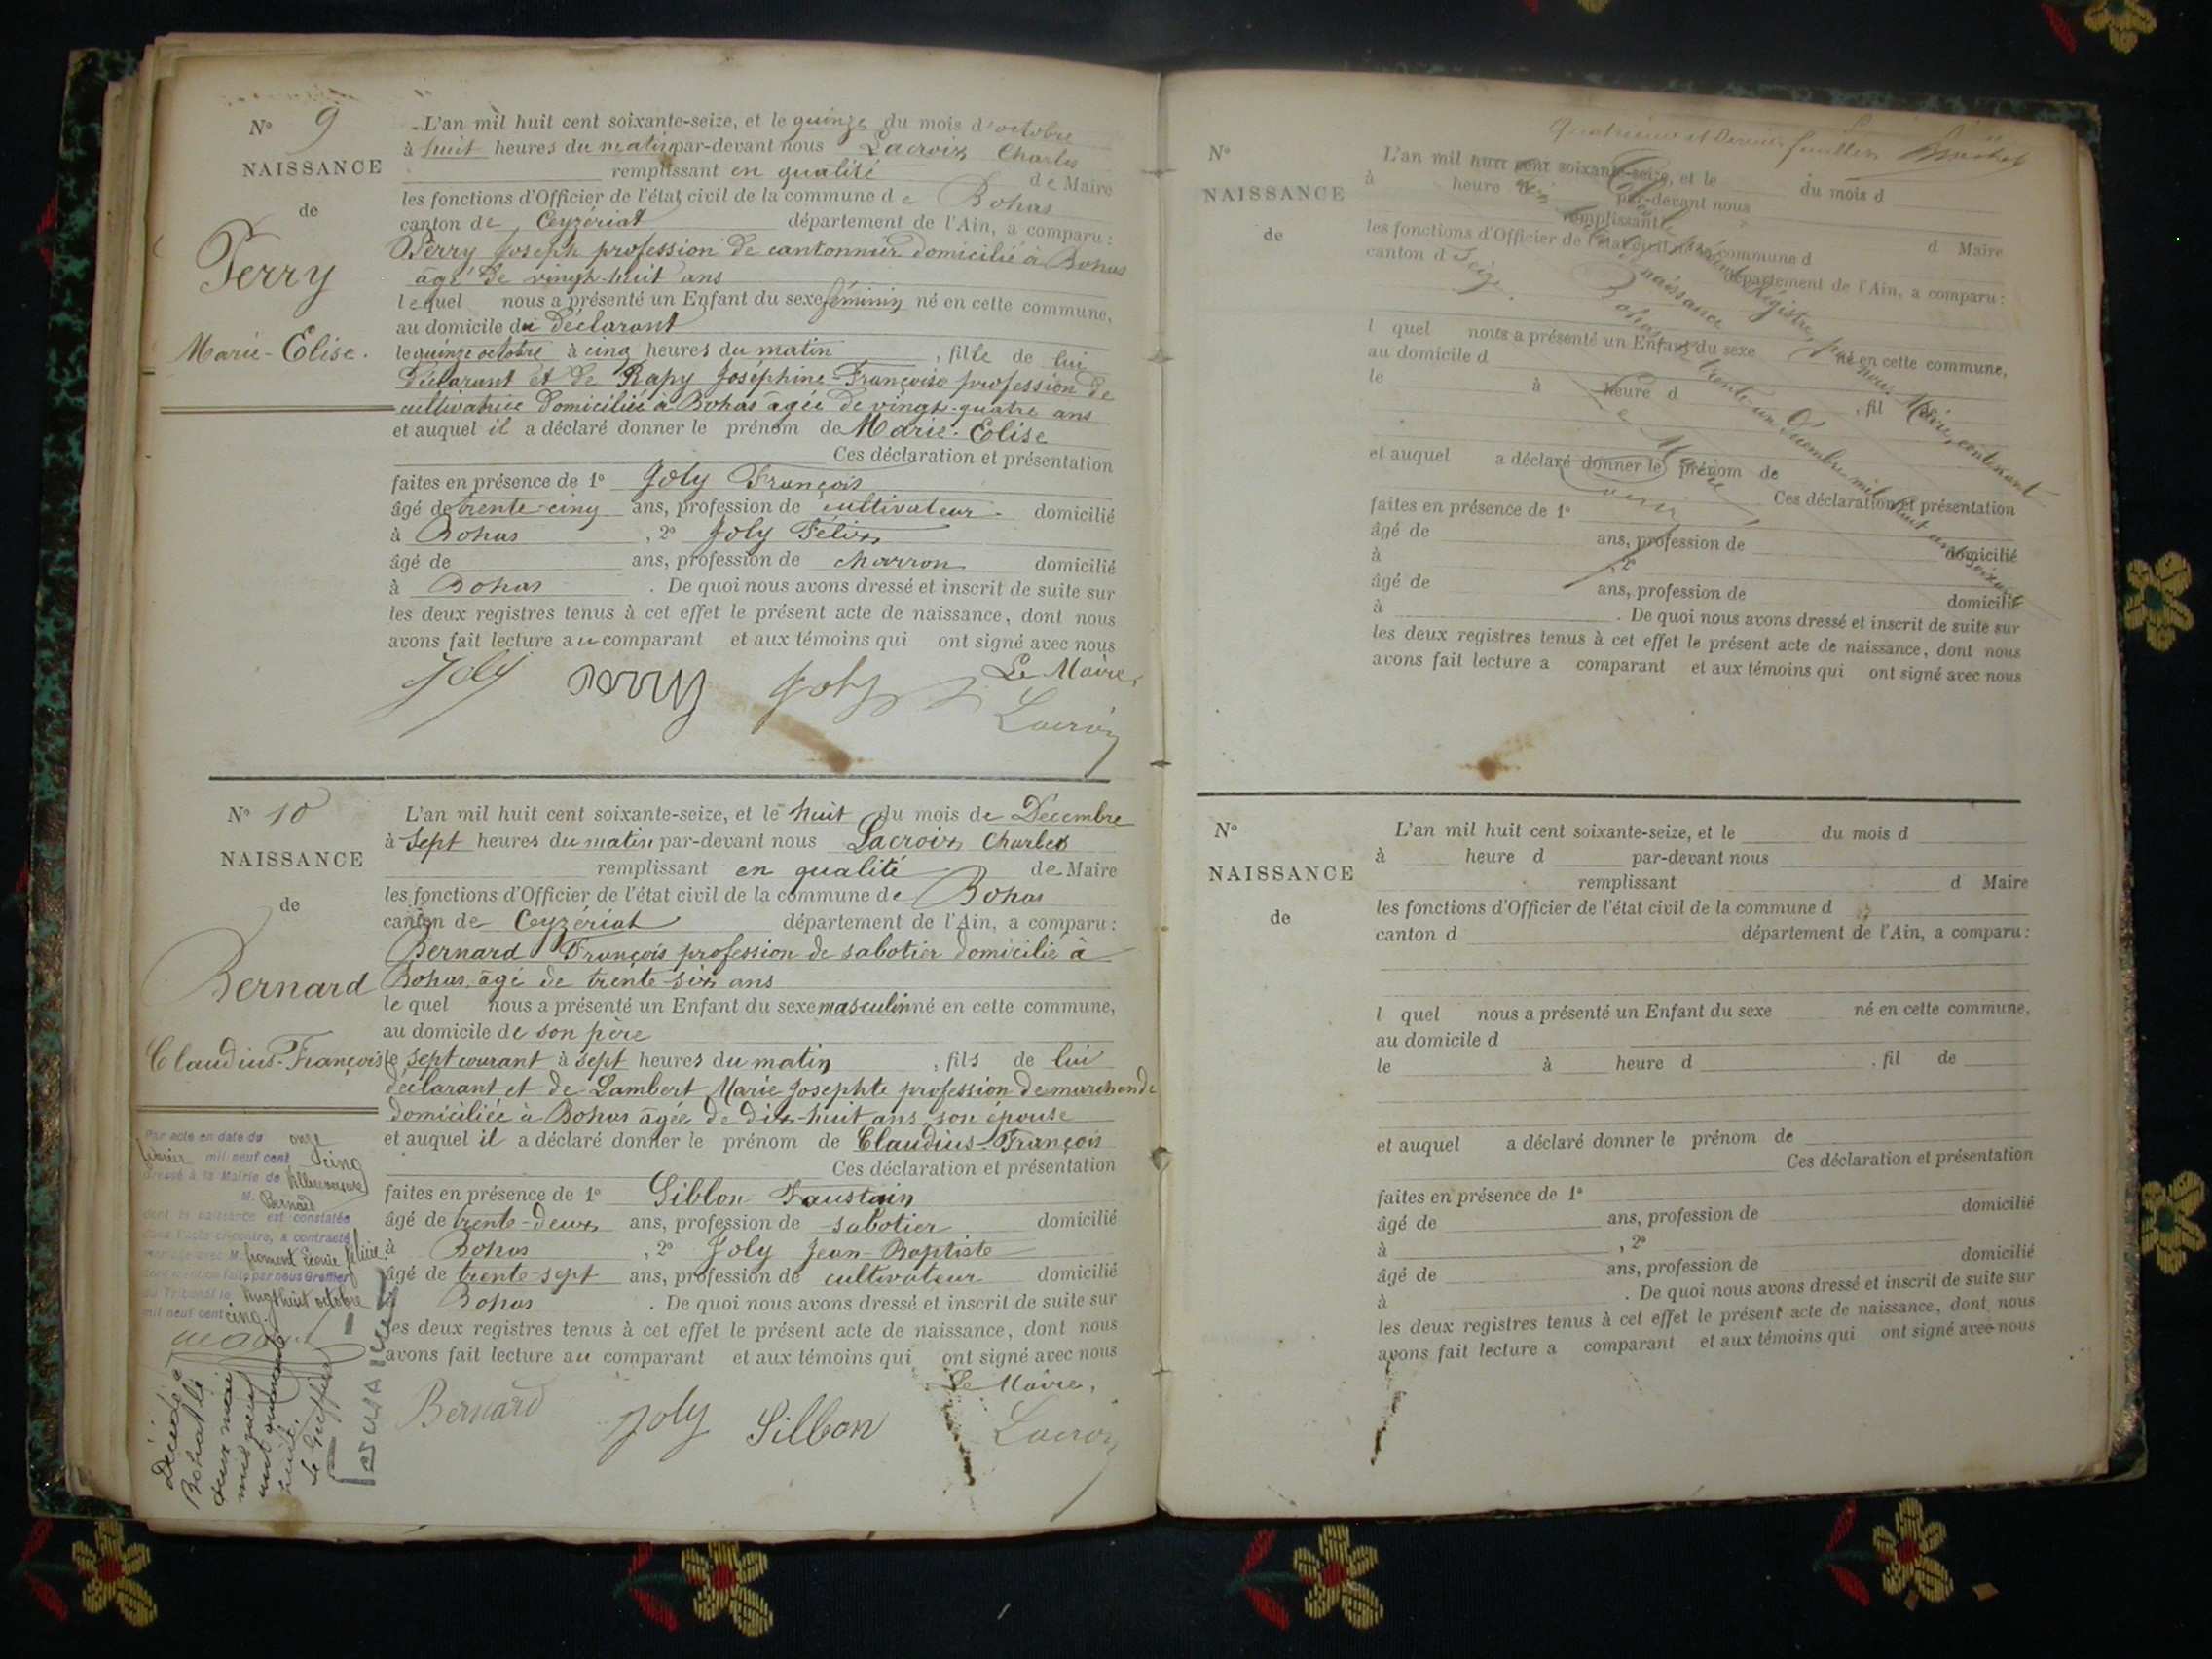 N° 9
NAISSANCE
de
Perry
Marie-Elise.
L'an mil huit cent soixante-seize, et le quinze du mois d'octobre
à huit heures du matin par-devant nous Lacroix Charles
remplissant en qualité de Maire
les fonctions d'Officier de l'état civil de la commune de Bohas
canton de Ceyzériat département de l'Ain, a comparu :
Perry Joseph profession de cantonnier domicilié à Bohas
âgé de vingt-huit ans
lequel nous a présenté un Enfant du sexe féminin né en cette commune,
au domicile du déclarant
le quinze octobre à cinq heures du matin , fille de lui
déclarant et de Rapy Joséphine-Françoise profession de
cultivatrice domiciliée à Bohas âgée de vingt-quatre ans
et auquel il a déclaré donner le prénom de Marie-Elise
Ces déclaration et présentation
faites en présence de 1° Joly François
âgé de trente-cinq ans, profession de cultivateur domicilié
à Bohas , 2° Joly Félix
âgé de ans, profession de charron domicilié
à Bohas . De quoi nous avons dressé et inscrit de suite sur
les deux registres tenus à cet effet le présent acte de naissance, dont nous
avons fait lecture au comparant et aux témoins qui ont signé avec nous
Le Maire,
Joly Perry Joly
Lacroix
N° 10
NAISSANCE
de
Bernard
Claudius-François
L'an mil huit cent soixante-seize, et le huit du mois de Decembre
à sept heures du matin par-devant nous Lacroix Charles
remplissant en qualité de Maire
les fonctions d'Officier de l'état civil de la commune de Bohas
canton de Ceyzériat département de l'Ain, a comparu :
Bernard François profession de sabotier domicilié à
Bohas, âgé de trente-six ans
le quel nous a présenté un Enfant du sexe masculin né en cette commune,
au domicile de son père
le sept courant à sept heures du matin , fils de lui
déclarant et de Lambert Marie Josephte profession de marchande
domiciliée à Bohas âgée de dix-huit ans, son épouse
et auquel il a déclaré donner le prénom de Claudius-François
Ces déclaration et présentation
faites en présence de 1° Siblon Faustain
âgé de trente-deux ans, profession de sabotier domicilié
à Bohas , 2° Joly Jean-Baptiste
âgé de trente-sept ans, profession de cultivateur domicilié
à Bohas . De quoi nous avons dressé et inscrit de suite sur
les deux registres tenus à cet effet le présent acte de naissance, dont nous
avons fait lecture au comparant et aux témoins qui ont signé avec nous
Le Maire,
Bernard Joly Silbon Lacroix
Par acte en date du onze
février mil neuf cent cinq
dressé à la Mairie de Villereversure
M. Bernard
dont la naissance est constatée
dans l'acte ci-contre, a contracté
mariage avec M. froment
dont mention faite par nous Greffier
du Tribunal le vingt huit octobre
mil neuf cent cinq.
Décédé à
Bohas le
deux mai
mil neuf
cent quarante
huit.
Le Greffier
Quatrième et Dernier feuillet
N°
NAISSANCE
de
L'an mil huit cent soixante-seize, et le du mois d
à heure d par-devant nous
remplissant d Maire
les fonctions d'Officier de l'état civil de la commune d
canton d département de l'Ain, a comparu :
l quel nous a présenté un Enfant du sexe né en cette commune,
au domicile d
le à heure d , fil
et auquel a déclaré donner le prénom de
Ces déclaration et présentation
faites en présence de 1°
âgé de ans, profession de domicilié
à , 2°
âgé de ans, profession de domicilié
à . De quoi nous avons dressé et inscrit de suite sur
les deux registres tenus à cet effet le présent acte de naissance, dont nous
avons fait lecture a comparant et aux témoins qui ont signé avec nous
Clos le présent Régistre, par nous Maire, contenant
dix naissances
Bohas le trente-un Decembre mil huit cent soixante
Seize.
Le Maire,
N°
NAISSANCE
de
L'an mil huit cent soixante-seize, et le du mois d
à heure d par-devant nous
remplissant d Maire
les fonctions d'Officier de l'état civil de la commune d
canton d département de l'Ain, a comparu :
l quel nous a présenté un Enfant du sexe né en cette commune,
au domicile d
le à heure d , fil de
et auquel a déclaré donner le prénom de
Ces déclaration et présentation
faites en présence de 1°
âgé de ans, profession de domicilié
à , 2°
âgé de ans, profession de domicilié
à . De quoi nous avons dressé et inscrit de suite sur
les deux registres tenus à cet effet le présent acte de naissance, dont nous
avons fait lecture a comparant et aux témoins qui ont signé avec nous